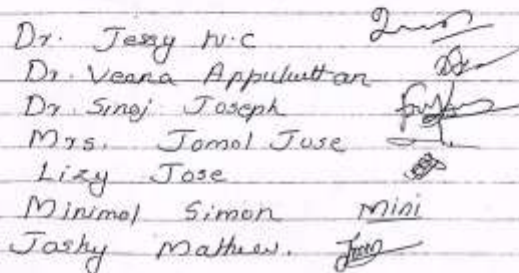 Dr. Jessy N.C
Dr. Veena Appukuttan
Dr. Sinoj Joseph
Mrs. Jomol Jose
Lizy Jose
Minimol Simon Mini
Joshy Mathew.